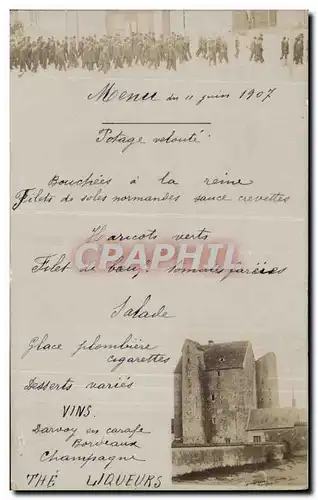 Menu du 11 juin 1907
Potage velouté
Bouchées à la reine
Filets de soles normandes sauce crevettes
Haricots verts
CPARAMA
Filet de bœuf pommes farcies
Salade
Glace plombière
cigarettes
Desserts variés
VINS.
en carafe
Bordeaux
Champagne
THÉ LIQUEURS